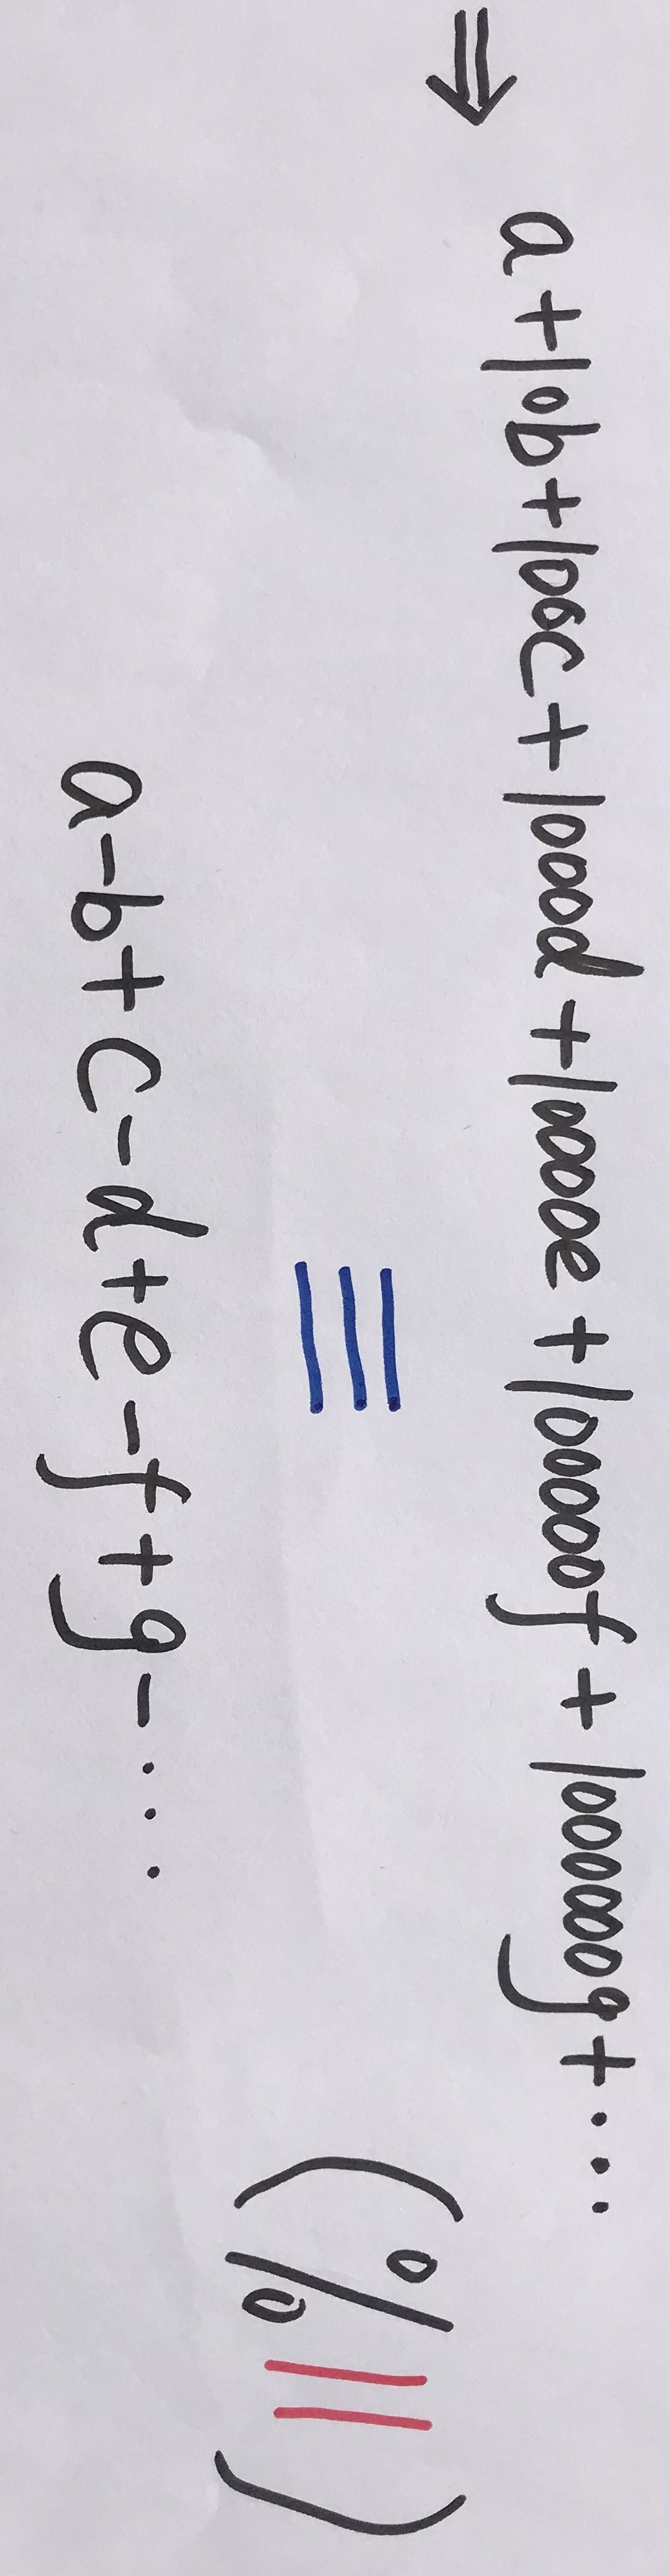 a+10b+100c+1000d+10000e+100000f+1000000g+···
⇒
≡ (%11)
a-b+c-d+e-f+g-····